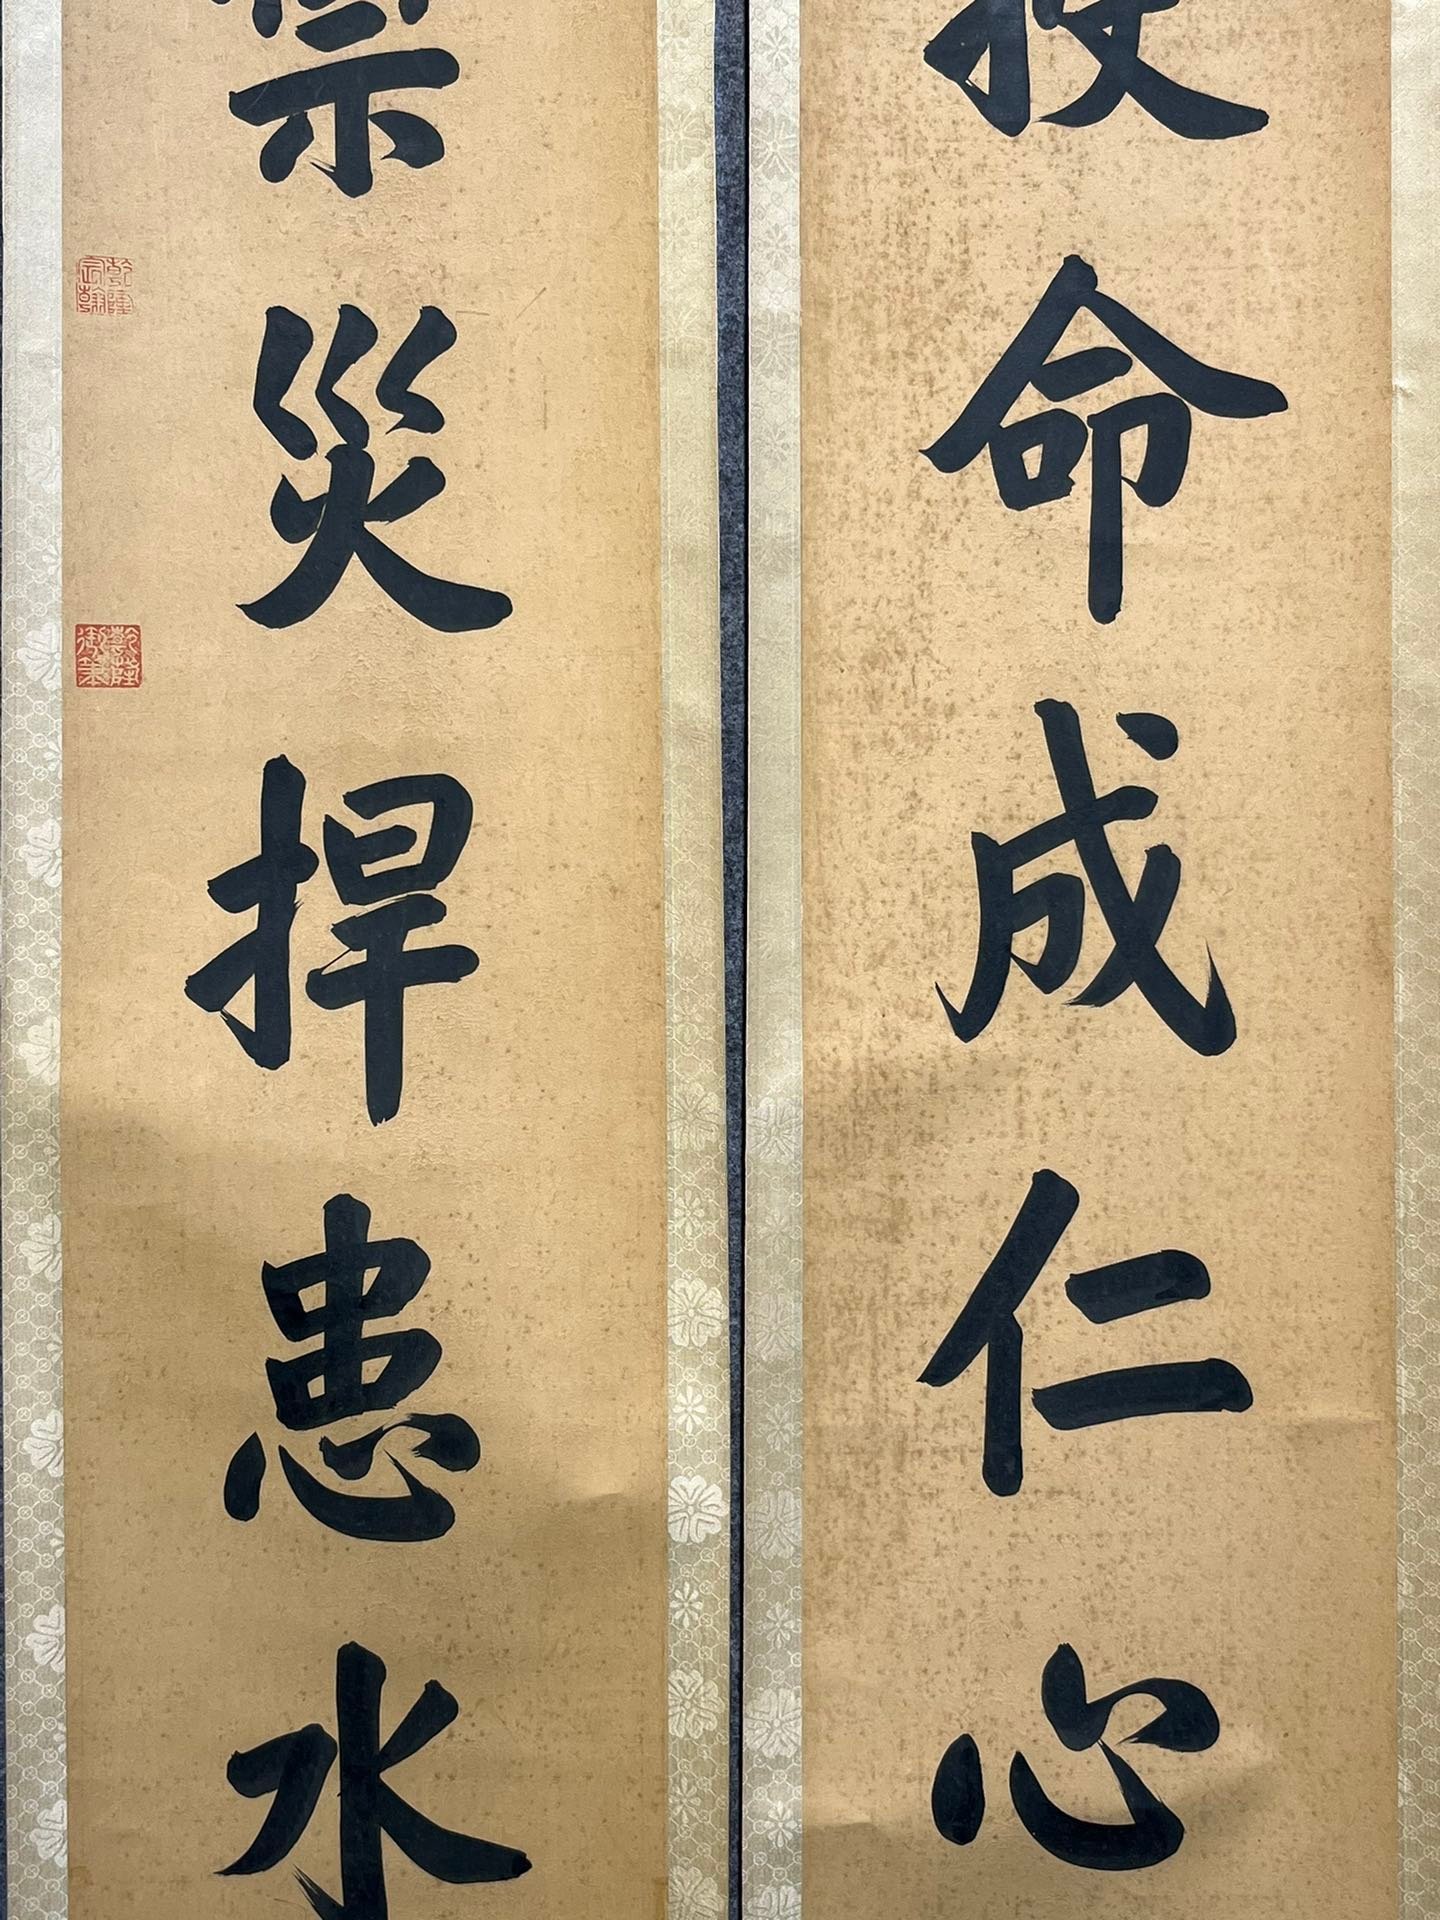 投命成仁心
禦災捍患水
乾隆宸翰
乾隆御筆